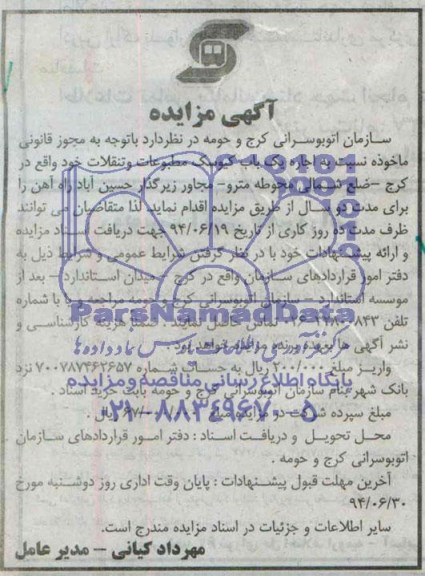 آگهی مزایده
سازمان اتوبوسرانی کرج و حومه در نظردارد باتوجه به مجوز قانونی
ماخوذه نسبت به اجاره یک باب کیوسک مطبوعات وتنقلات خود واقع در
کرج –ضلع شمالی محوطه مترو– مجاور زیرگذر حسین آباد راه آهن را
برای مدت دو سال از طریق مزایده اقدام نماید. لذا متقاضیان می توانند
ظرف مدت ده روز کاری از تاریخ ۹۴/۰۶/۱۹ جهت دریافت اسناد مزایده
و ارائه پیشنهادات خود با در نظر گرفتن شرایط عمومی و شرایط ذیل به
دفتر امور قراردادهای سازمان واقع در کرج – میدان استاندارد – بعد از
موسسه استاندارد – سازمان اتوبوسرانی کرج و حومه مراجعه و یا با شماره
تلفن تماس حاصل نمایند. ضمنا هزینه کارشناسی و
نشر آگهی ها برعهده برنده مزایده خواهد بود.
واریز مبلغ ۲۰۰/۰۰۰ ریال به حساب شماره ۷۰۰۷۸۷۴۶۲۶۵۷ نزد
بانک شهر بنام سازمان اتوبوسرانی کرج و حومه بابت خرید اسناد .
مبلغ سپرده شرکت در مزایده مبلغ ریال .
محل تحویل و دریافت اسناد : دفتر امور قراردادهای سازمان
اتوبوسرانی کرج و حومه .
آخرین مهلت قبول پیشنهادات : پایان وقت اداری روز دوشنبه مورخ
۹۴/۰۶/۳۰
سایر اطلاعات و جزئیات در اسناد مزایده مندرج است.
مهرداد کیانی – مدیر عامل
ParsNamadData
پایگاه اطلاع رسانی مناقصه و مزایده
۰۲۱-۸۸۳۴۹۶۷۰-۵